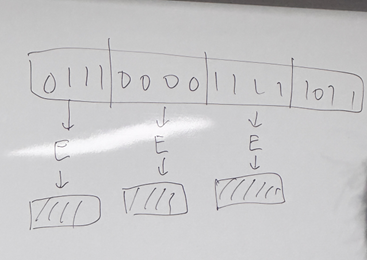 0111 0000 1111 1011
E E E